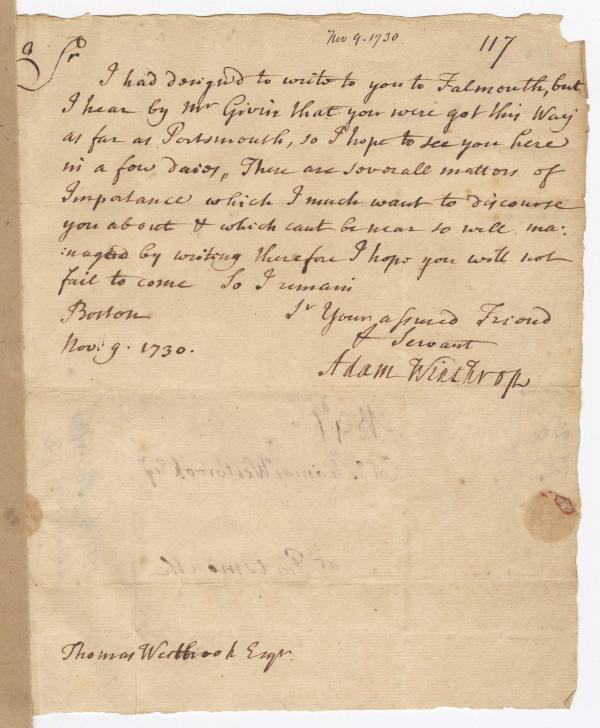 Nov 9. 1730
117
Sr
I had design'd to write to you to Falmouth, but
I hear by Mr Givin that you were got this Way
as far as Portsmouth, so I hope to see you here
in a few daies, There are severall matters of
Importance which I much want to discourse
you about & which cant be near so well ma:
:naged by writing therefore I hope you will not
fail to come So I remain
Boston Sr Your assured Friend
& Servant
Nov. 9. 1730.
Adam Winthrop
Thomas Westbrook Esq
at Portsmouth
Thomas Westbrook Esqr.